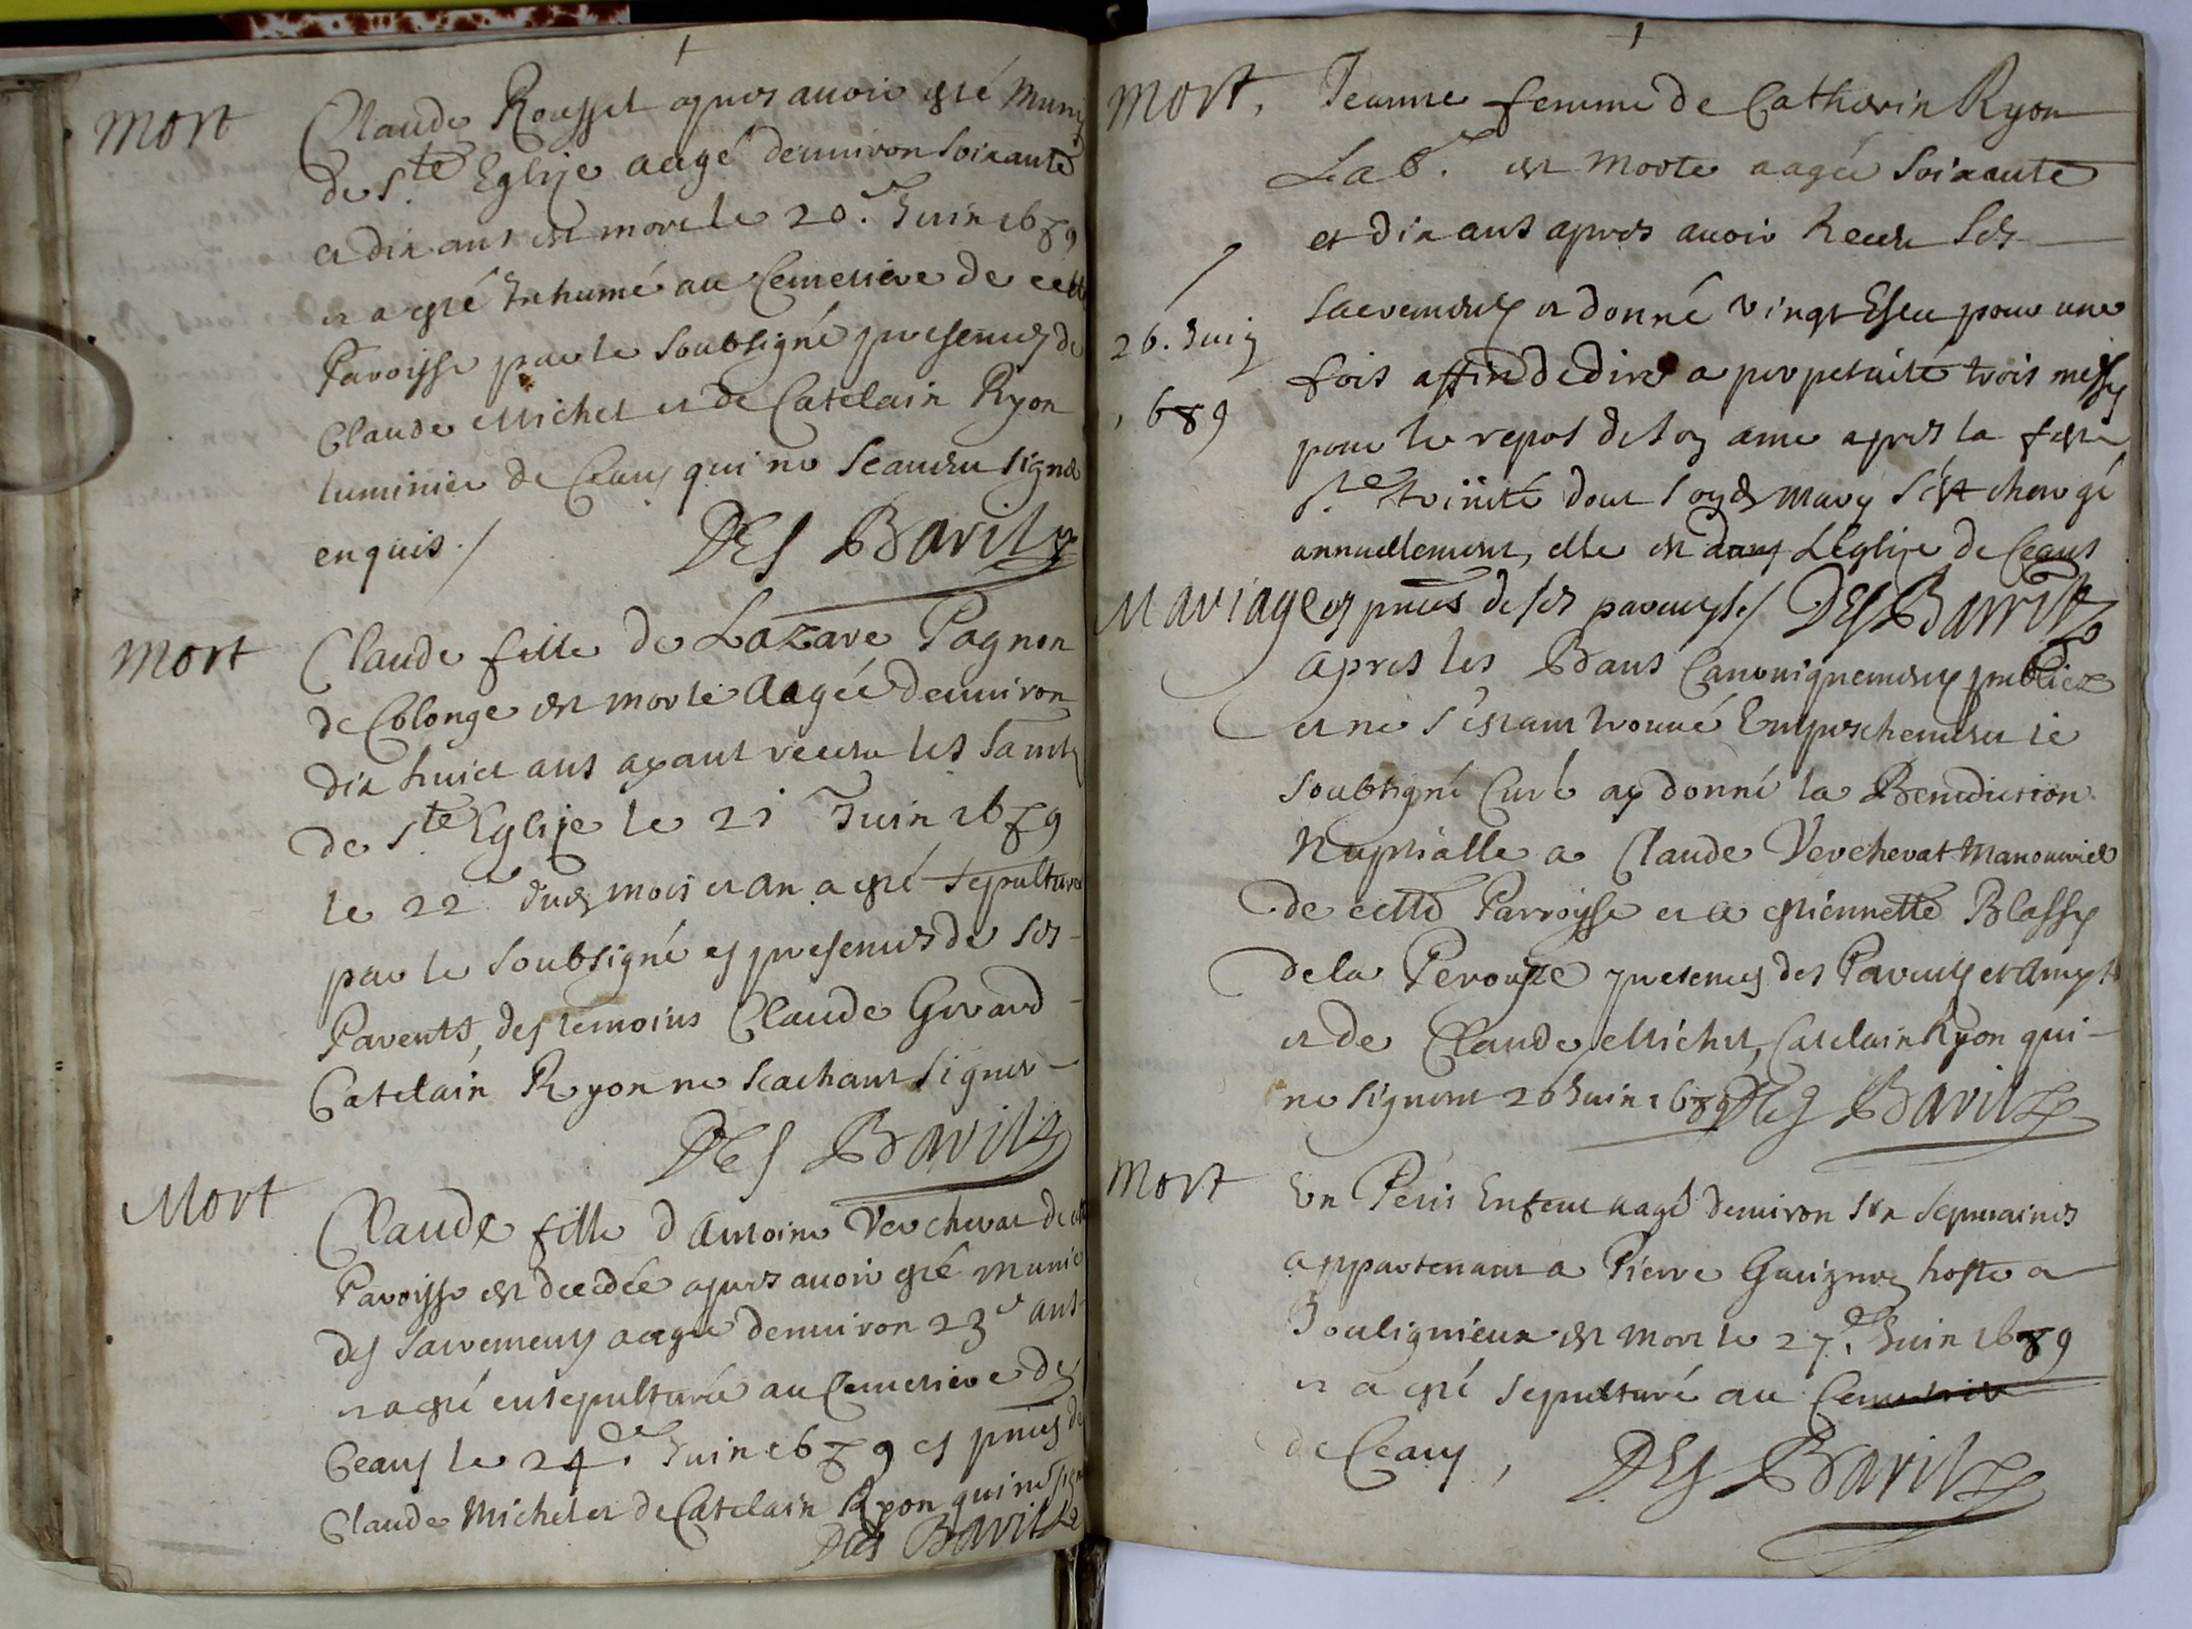 Mort
Claude Roussel apres avoir esté muny
de Ste Eglise aagé denviron soixante
et dix ans est mort le 20e Juin 1689
et a esté Inhumé au Cemetiere de cette
Paroisse par le soubsigné presences de
Claude Michel et de Catelain Ryon
luminier de Ceans qui ne sceauent signer
enquis ./ DES Bavilz
Mort
Claude fille de Lazare Pagnon
de Colonge est morte aagée denviron
dix huict ans ayant receu les Sam
de Ste Eglise le 21 Juin 1689
le 22 dud mois et an a esté sepulturée
par le soubsigné es presences de ses
Parents, des temoins Claude Girard
Catelain Ryon ne scachant signer
DES Bavilz
Mort
Claude fille d'Antoine Verchevat de
Paroisse est decedée apres avoir esté munie
des sacrements aagée denviron 23e ans
et a esté ensepulturée au Cemetiere de
Ceans le 24e Juin 1689 es pnces de
Claude Michel et de Catelain Ryon qui ne
Des Bavilz
Mort, Jeanne femme de Catherin Ryon
Lab.r est morte aagée soixante
et dix ans apres avoir Receu ses
sacrements et donné vingt Escu pour une
26. Juin
1689
fois affin de dire a perpetuité trois messes
pour le repos de son ame apres la feste
Ste trinité dont sond mary s'est chargé
annuellement, elle est dans L'Eglise de Ceans
es pnces de ses parents ./ DES Bavilz
Mariage
apres les Bans Canoniquement publiez
et ne s'estant trouué Empeschement ie
soubsigné Curé ay donné la Benediction
Nuptialle a Claude Verchevat Manouurier
de cette Parroisse et a estiennette Blassy
de la Perouze presences des Parents et Amys
et de Claude Michel, Catelain Ryon qui
ne signent 26 Juin 1689 Des Bavilz
Mort
Un Petit Enfant aagé denviron six sepmaines
appartenant a Pierre hoste a
Joulignieux est mort le 27.e Juin 1689
et a esté sepulturé au Cemetiere
de Ceans, DES Bavilz